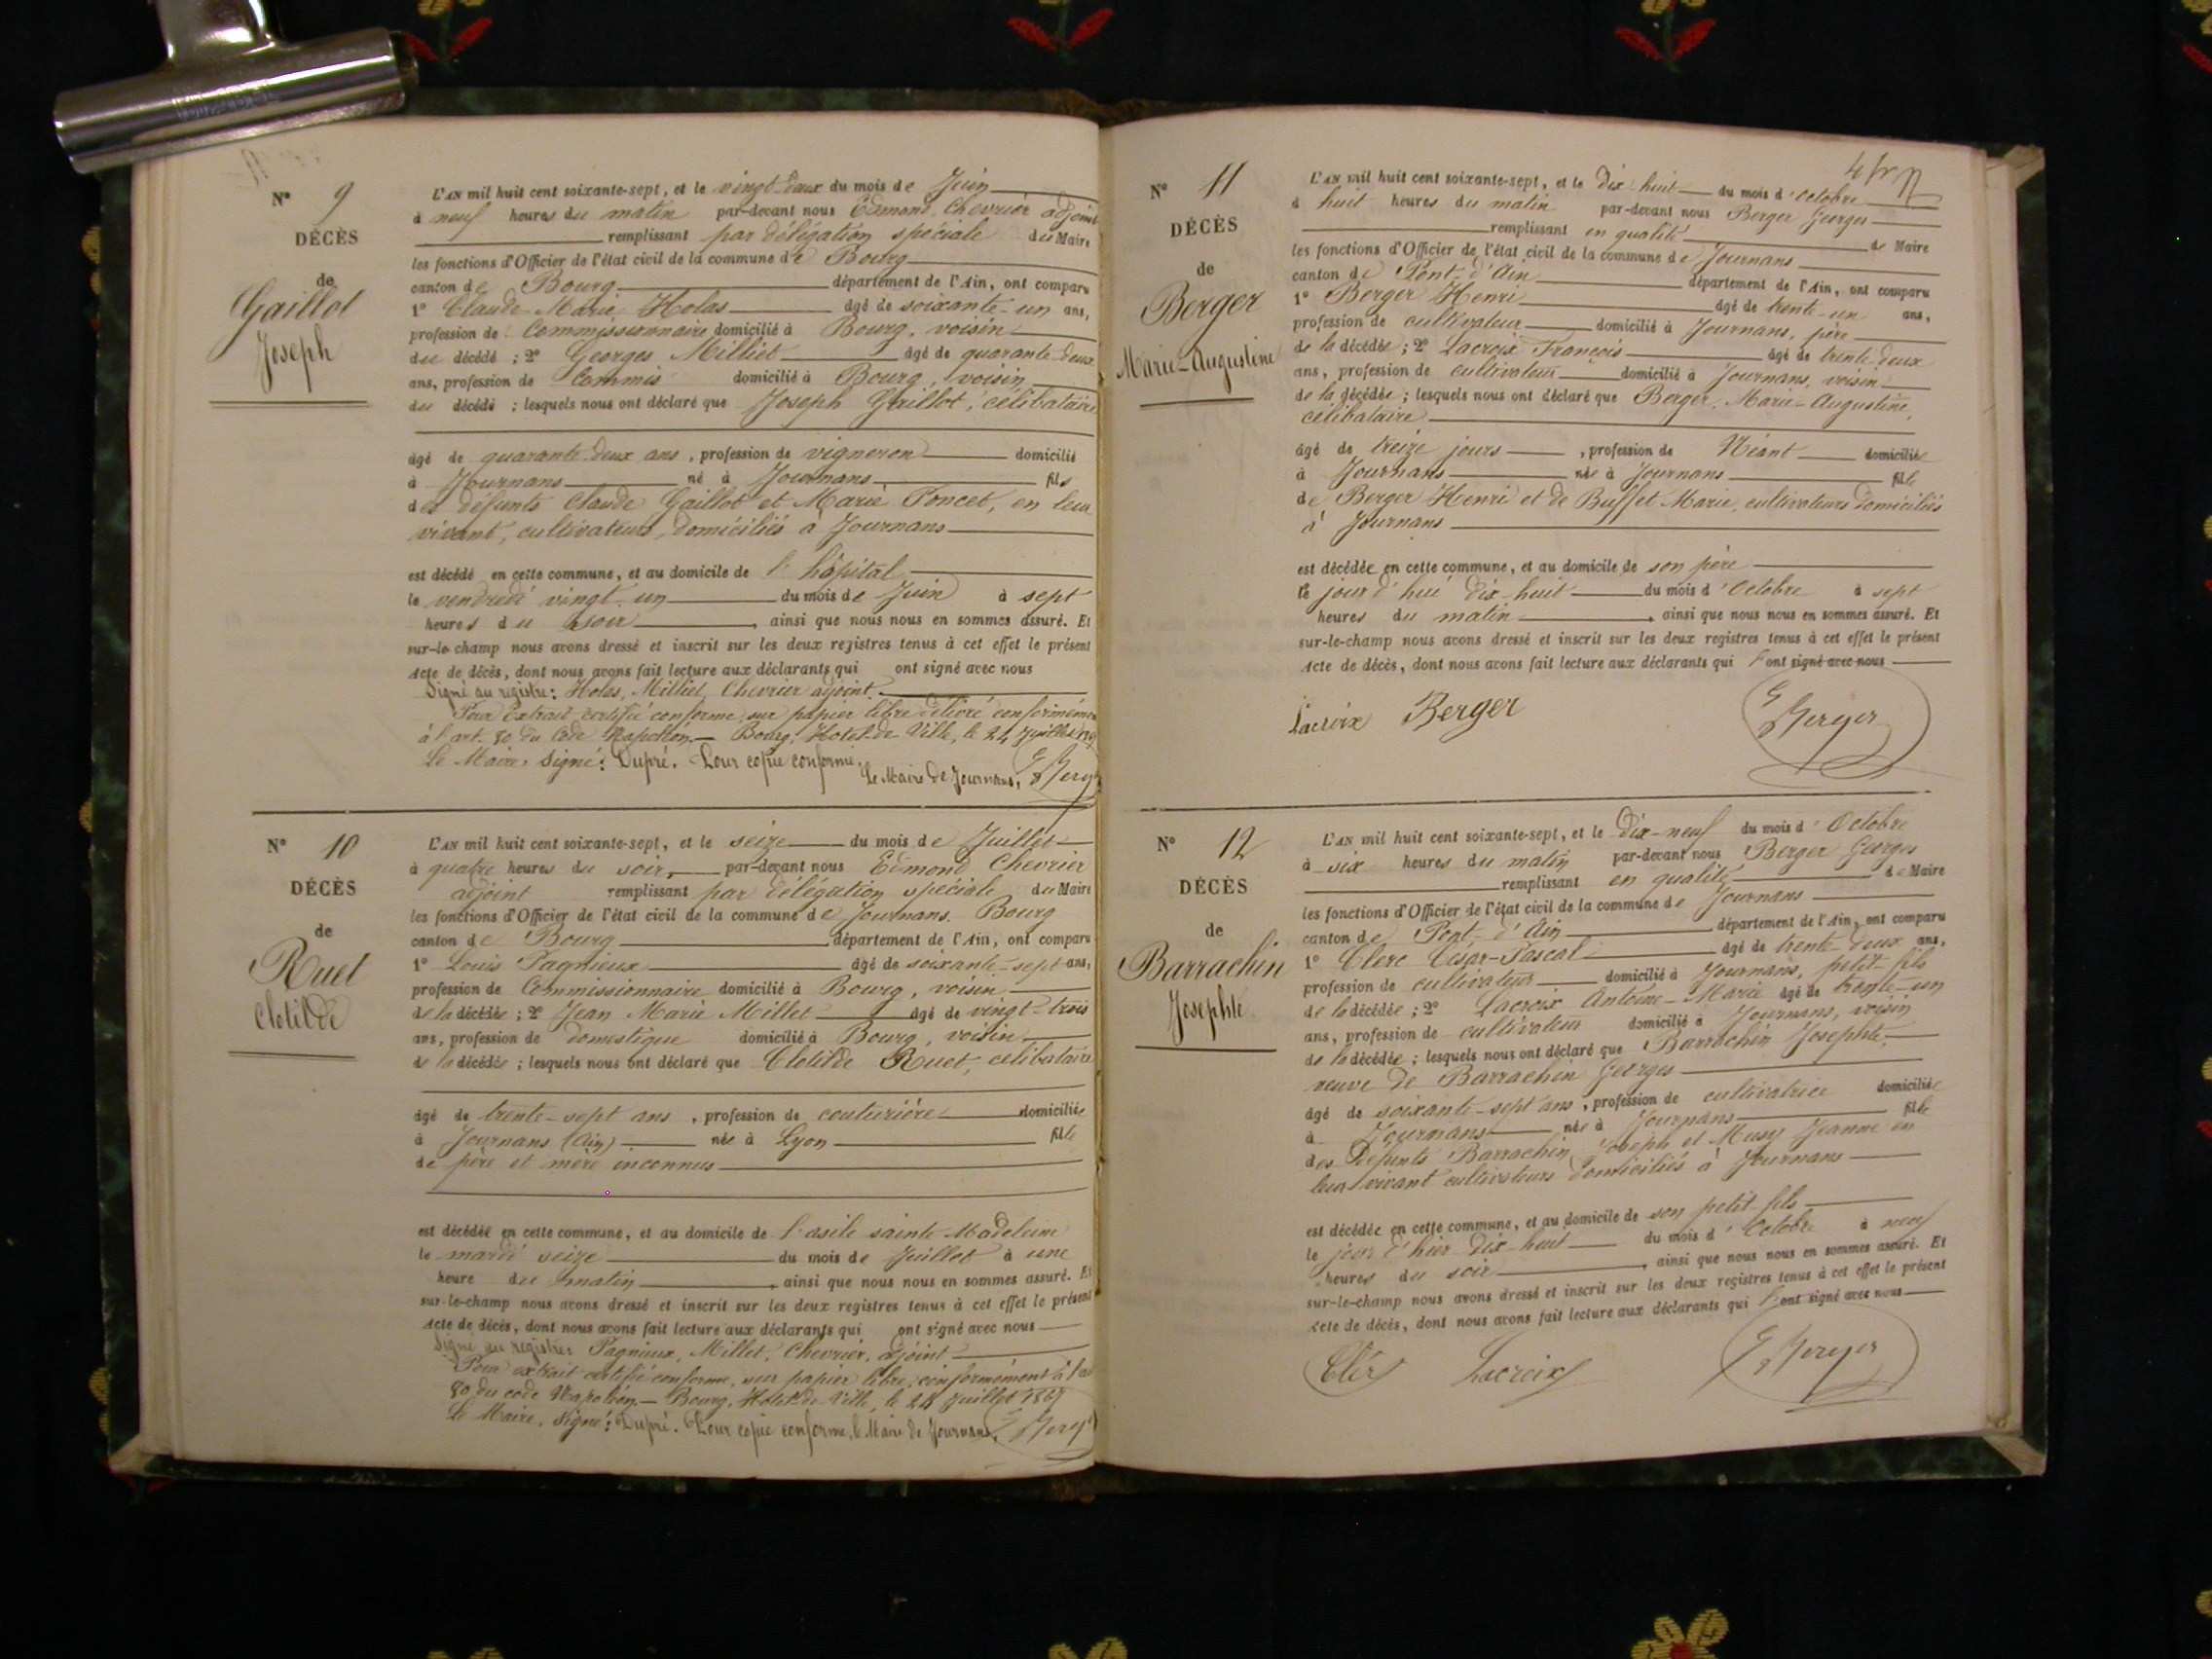 N° 9
DÉCÈS
de
Gaillot
Joseph
L'AN mil huit cent soixante-sept, et le vingt-deux du mois de Juin
à neuf heures du matin par-devant nous Edmond Chevrier adjoint
remplissant par délégation spéciale du Maire
les fonctions d'Officier de l'état civil de la commune de Bourg
canton de Bourg département de l'Ain, ont comparu
1° Claude Marie Holas âgé de soixante-un ans,
profession de Commissionnaire domicilié à Bourg, voisin
du décédé ; 2° Georges Milliet âgé de quarante-deux
ans, profession de Commis domicilié à Bourg, voisin
du décédé ; lesquels nous ont déclaré que Joseph Gaillot, célibataire
âgé de quarante-deux ans, profession de vigneron domicilié
à Journans né à Journans fils
des défunts Claude Gaillot et Marie Poncet, en leur
vivant, cultivateurs, domiciliés à Journans
est décédé en cette commune, et au domicile de l'hôpital
le vendredi vingt-un du mois de Juin à sept
heures du soir, ainsi que nous nous en sommes assuré. Et
sur-le-champ nous avons dressé et inscrit sur les deux registres tenus à cet effet le présent
Acte de décès, dont nous avons fait lecture aux déclarants qui ont signé avec nous
Signé au registre : Holas, Milliet, Chevrier adjoint.
Pour extrait certifié conforme, sur papier libre délivré conformément
à l'art. 80 du Code Napoléon. — Bourg, Hotel-de-Ville, le 24 Juillet
Le Maire, Signé : Dupré. Pour copie conforme,
Le Maire de Journans,
N° 10
DÉCÈS
de
Ruet
Clotilde
L'AN mil huit cent soixante-sept, et le seize du mois de Juillet
à quatre heures du soir, par-devant nous Edmond Chevrier
adjoint remplissant par délégation spéciale du Maire
les fonctions d'Officier de l'état civil de la commune de Journans, Bourg
canton de Bourg département de l'Ain, ont comparu
1° Louis Pagnieux âgé de soixante-sept ans,
profession de Commissionnaire domicilié à Bourg, voisin
de la décédée ; 2° Jean Marie Millet âgé de vingt-trois
ans, profession de domestique domicilié à Bourg, voisin
de la décédée ; lesquels nous ont déclaré que Clotilde Ruet, célibataire
âgé de trente-sept ans, profession de couturière domiciliée
à Journans (Ain) née à Lyon fille
de père et mère inconnus
est décédée en cette commune, et au domicile de l'asile sainte Madeleine
le mardi seize du mois de Juillet à une
heure du matin, ainsi que nous nous en sommes assuré. Et
sur-le-champ nous avons dressé et inscrit sur les deux registres tenus à cet effet le présent
Acte de décès, dont nous avons fait lecture aux déclarants qui ont signé avec nous
Signé au registre, Pagnieux, Millet, Chevrier, adjoint
Pour extrait certifié conforme, sur papier libre, conformément à l'art
80 du code Napoléon. — Bourg, Hotel-de-Ville, le 24 Juillet 1867
Le Maire, Signé : Dupré. Pour copie conforme, le Maire de Journans,
N° 11
DÉCÈS
de
Berger
Marie-Augustine
L'AN mil huit cent soixante-sept, et le dix-huit du mois d'Octobre
à huit heures du matin par-devant nous Berger Georges
remplissant en qualité de Maire
les fonctions d'Officier de l'état civil de la commune de Journans
canton de Pont-d'Ain département de l'Ain, ont comparu
1° Berger Henri âgé de trente-un ans,
profession de cultivateur domicilié à Journans, père
de la décédée ; 2° Lacroix François âgé de trente-deux
ans, profession de cultivateur domicilié à Journans, voisin
de la décédée ; lesquels nous ont déclaré que Berger, Marie-Augustine,
célibataire
âgé de treize jours, profession de Néant domiciliée
à Journans née à Journans fille
de Berger Henri et de Buffet Marie, cultivateurs domiciliés
à Journans
est décédée en cette commune, et au domicile de son père
le jour d'hui dix-huit du mois d'Octobre à sept
heures du matin, ainsi que nous nous en sommes assuré. Et
sur-le-champ nous avons dressé et inscrit sur les deux registres tenus à cet effet le présent
Acte de décès, dont nous avons fait lecture aux déclarants qui ont signé avec nous
Lacroix Berger G Berger
N° 12
DÉCÈS
de
Barrachin
Josephte
L'AN mil huit cent soixante-sept, et le dix-neuf du mois d'Octobre
à six heures du matin par-devant nous Berger Georges
remplissant en qualité de Maire
les fonctions d'Officier de l'état civil de la commune de Journans
canton de Pont-d'Ain département de l'Ain, ont comparu
1° Clerc César-Pascal âgé de trente-deux ans,
profession de cultivateur domicilié à Journans, petit-fils
de la décédée ; 2° Lacroix Antoine-Marie âgé de trente-un
ans, profession de cultivateur domicilié à Journans, voisin
de la décédée ; lesquels nous ont déclaré que Barrachin Josephte,
veuve de Barrachin Georges
âgé de soixante-sept ans, profession de cultivatrice domiciliée
à Journans née à Journans fille
des défunts Barrachin Joseph et Musy Jeanne en
leur vivant cultivateurs domiciliés à Journans
est décédée en cette commune, et au domicile de son petit-fils
le jour d'hier dix-huit du mois d'Octobre à neuf
heures du soir, ainsi que nous nous en sommes assuré. Et
sur-le-champ nous avons dressé et inscrit sur les deux registres tenus à cet effet le présent
Acte de décès, dont nous avons fait lecture aux déclarants qui ont signé avec nous
Clerc Lacroix G Berger